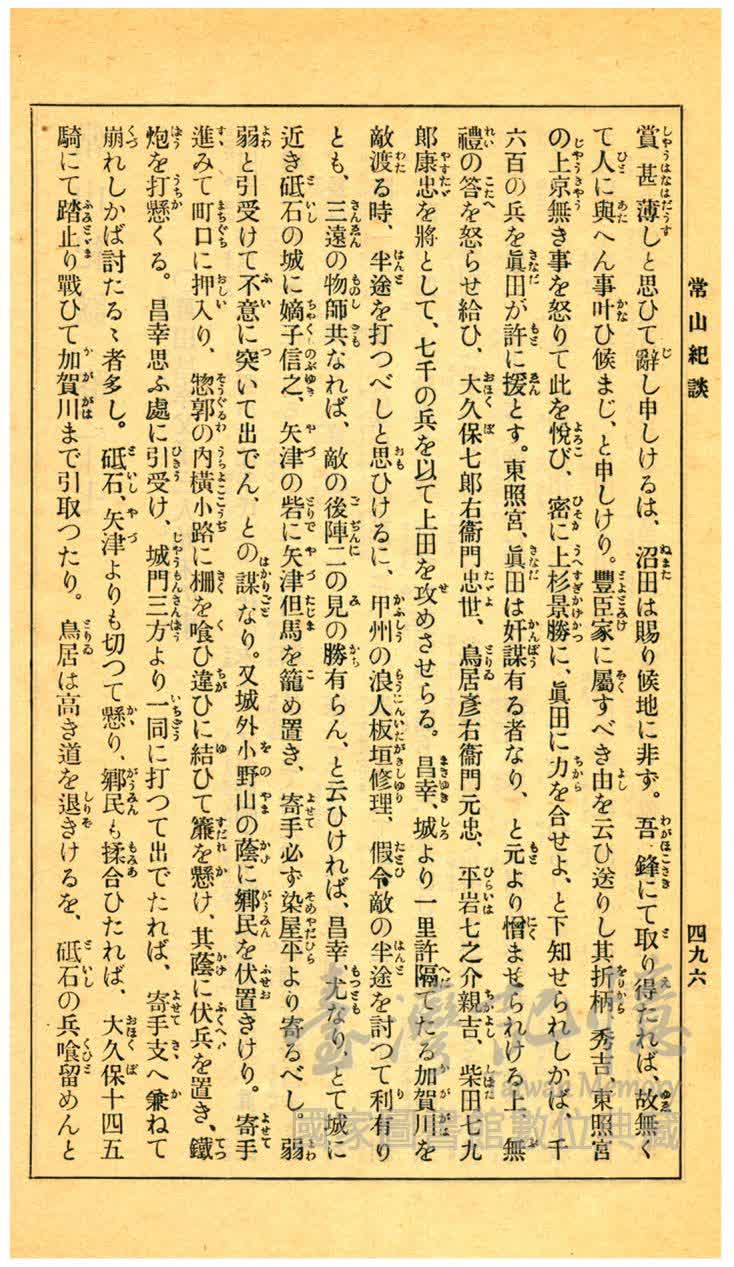 常山紀談
四九六
賞甚薄しと思ひて辭し申しけるは、沼田は賜り候地に非ず。吾鋒にて取り得たれば、故無く
て人に與へん事叶ひ候まじ、と申しけり。豐臣家に屬すべき由を云ひ送りし其折柄、秀吉、東照宮
の上京無き事を怒りて此を悅び、密に上杉景勝に、眞田に力を合せよ、と下知せられしかば、千
六百の兵を眞田が許に援とす。東照宮、眞田は奸謀有る者なり、と元より憎ませられける上、無
禮の答を怒らせ給ひ、大久保七郎右衞門忠世、鳥居彥右衞門元忠、平岩七之介親吉、柴田七九
郎康忠を將として、七千の兵を以て上田を攻めさせらる。昌幸、城より一里許隔てたる加賀川を
敵渡る時、半途を打つべしと思ひけるに、甲州の浪人板垣修理、假令敵の半途を討つて利有り
とも、三遠の物師共なれば、敵の後陣二の見の勝有らん、と云ひければ、昌幸、尤なり、とて城に
近き砥石の城に嫡子信之、矢津の砦に矢津但馬を籠め置き、寄手必ず染屋平より寄るべし。弱
弱と引受けて不意に突いて出でん、との謀なり。又城外小野山の蔭に鄕民を伏置きけり。寄手
進みて町口に押入り、惣郭の內橫小路に柵を喰ひ違ひに結ひて簾を懸け、其蔭に伏兵を置き、鐵
炮を打懸くる。昌幸思ふ處に引受け、城門三方より一同に打つて出でたれば、寄手支へ兼ねて
崩れしかば討たるゝ者多し。砥石、矢津よりも切つて懸り、鄕民も揉合ひたれば、大久保十四五
騎にて踏止り戰ひて加賀川まで引取つたり。鳥居は高き道を退きけるを、砥石の兵喰留めんと
臺灣記憶
Taiwan Memory
國家圖書館數位典藏